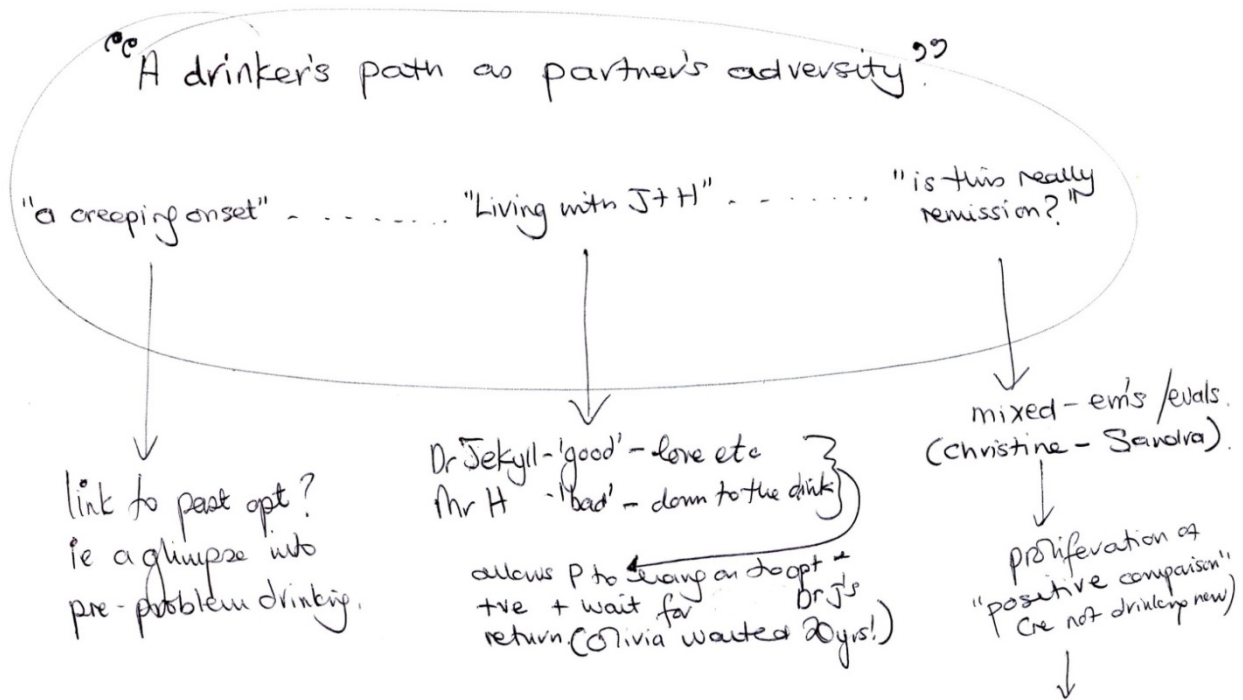 "A drinker's path as partner's adversity".
"a creeping onset" - . . . . . . . "Living with J+H" - . . . . . . . "is this really
remission?"
link to past opt?
ie a glimpse into
pre-problem drinking.
Dr Jekyll - 'good' - love etc
Mr H - 'bad' - down to the drink
allows P to on to opt -
+ve + wait for Dr J's
return (Olivia waited 20yrs!)
mixed - em's / evals.
(Christine - Sandra).
proliferation of
"positive comparison"
(re not drinking now)